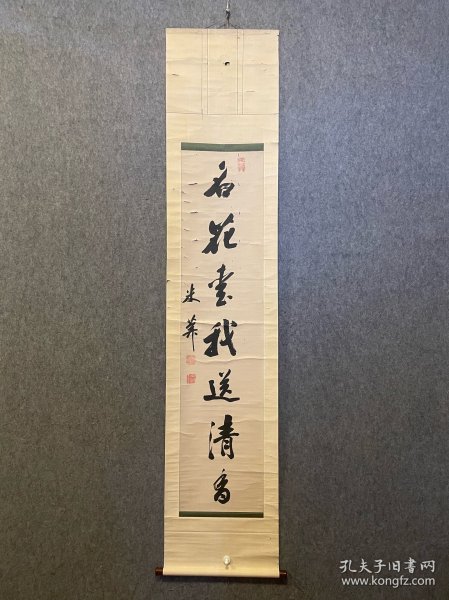 名花愛我送清香
米華
孔夫子旧书网
www.kongfz.com